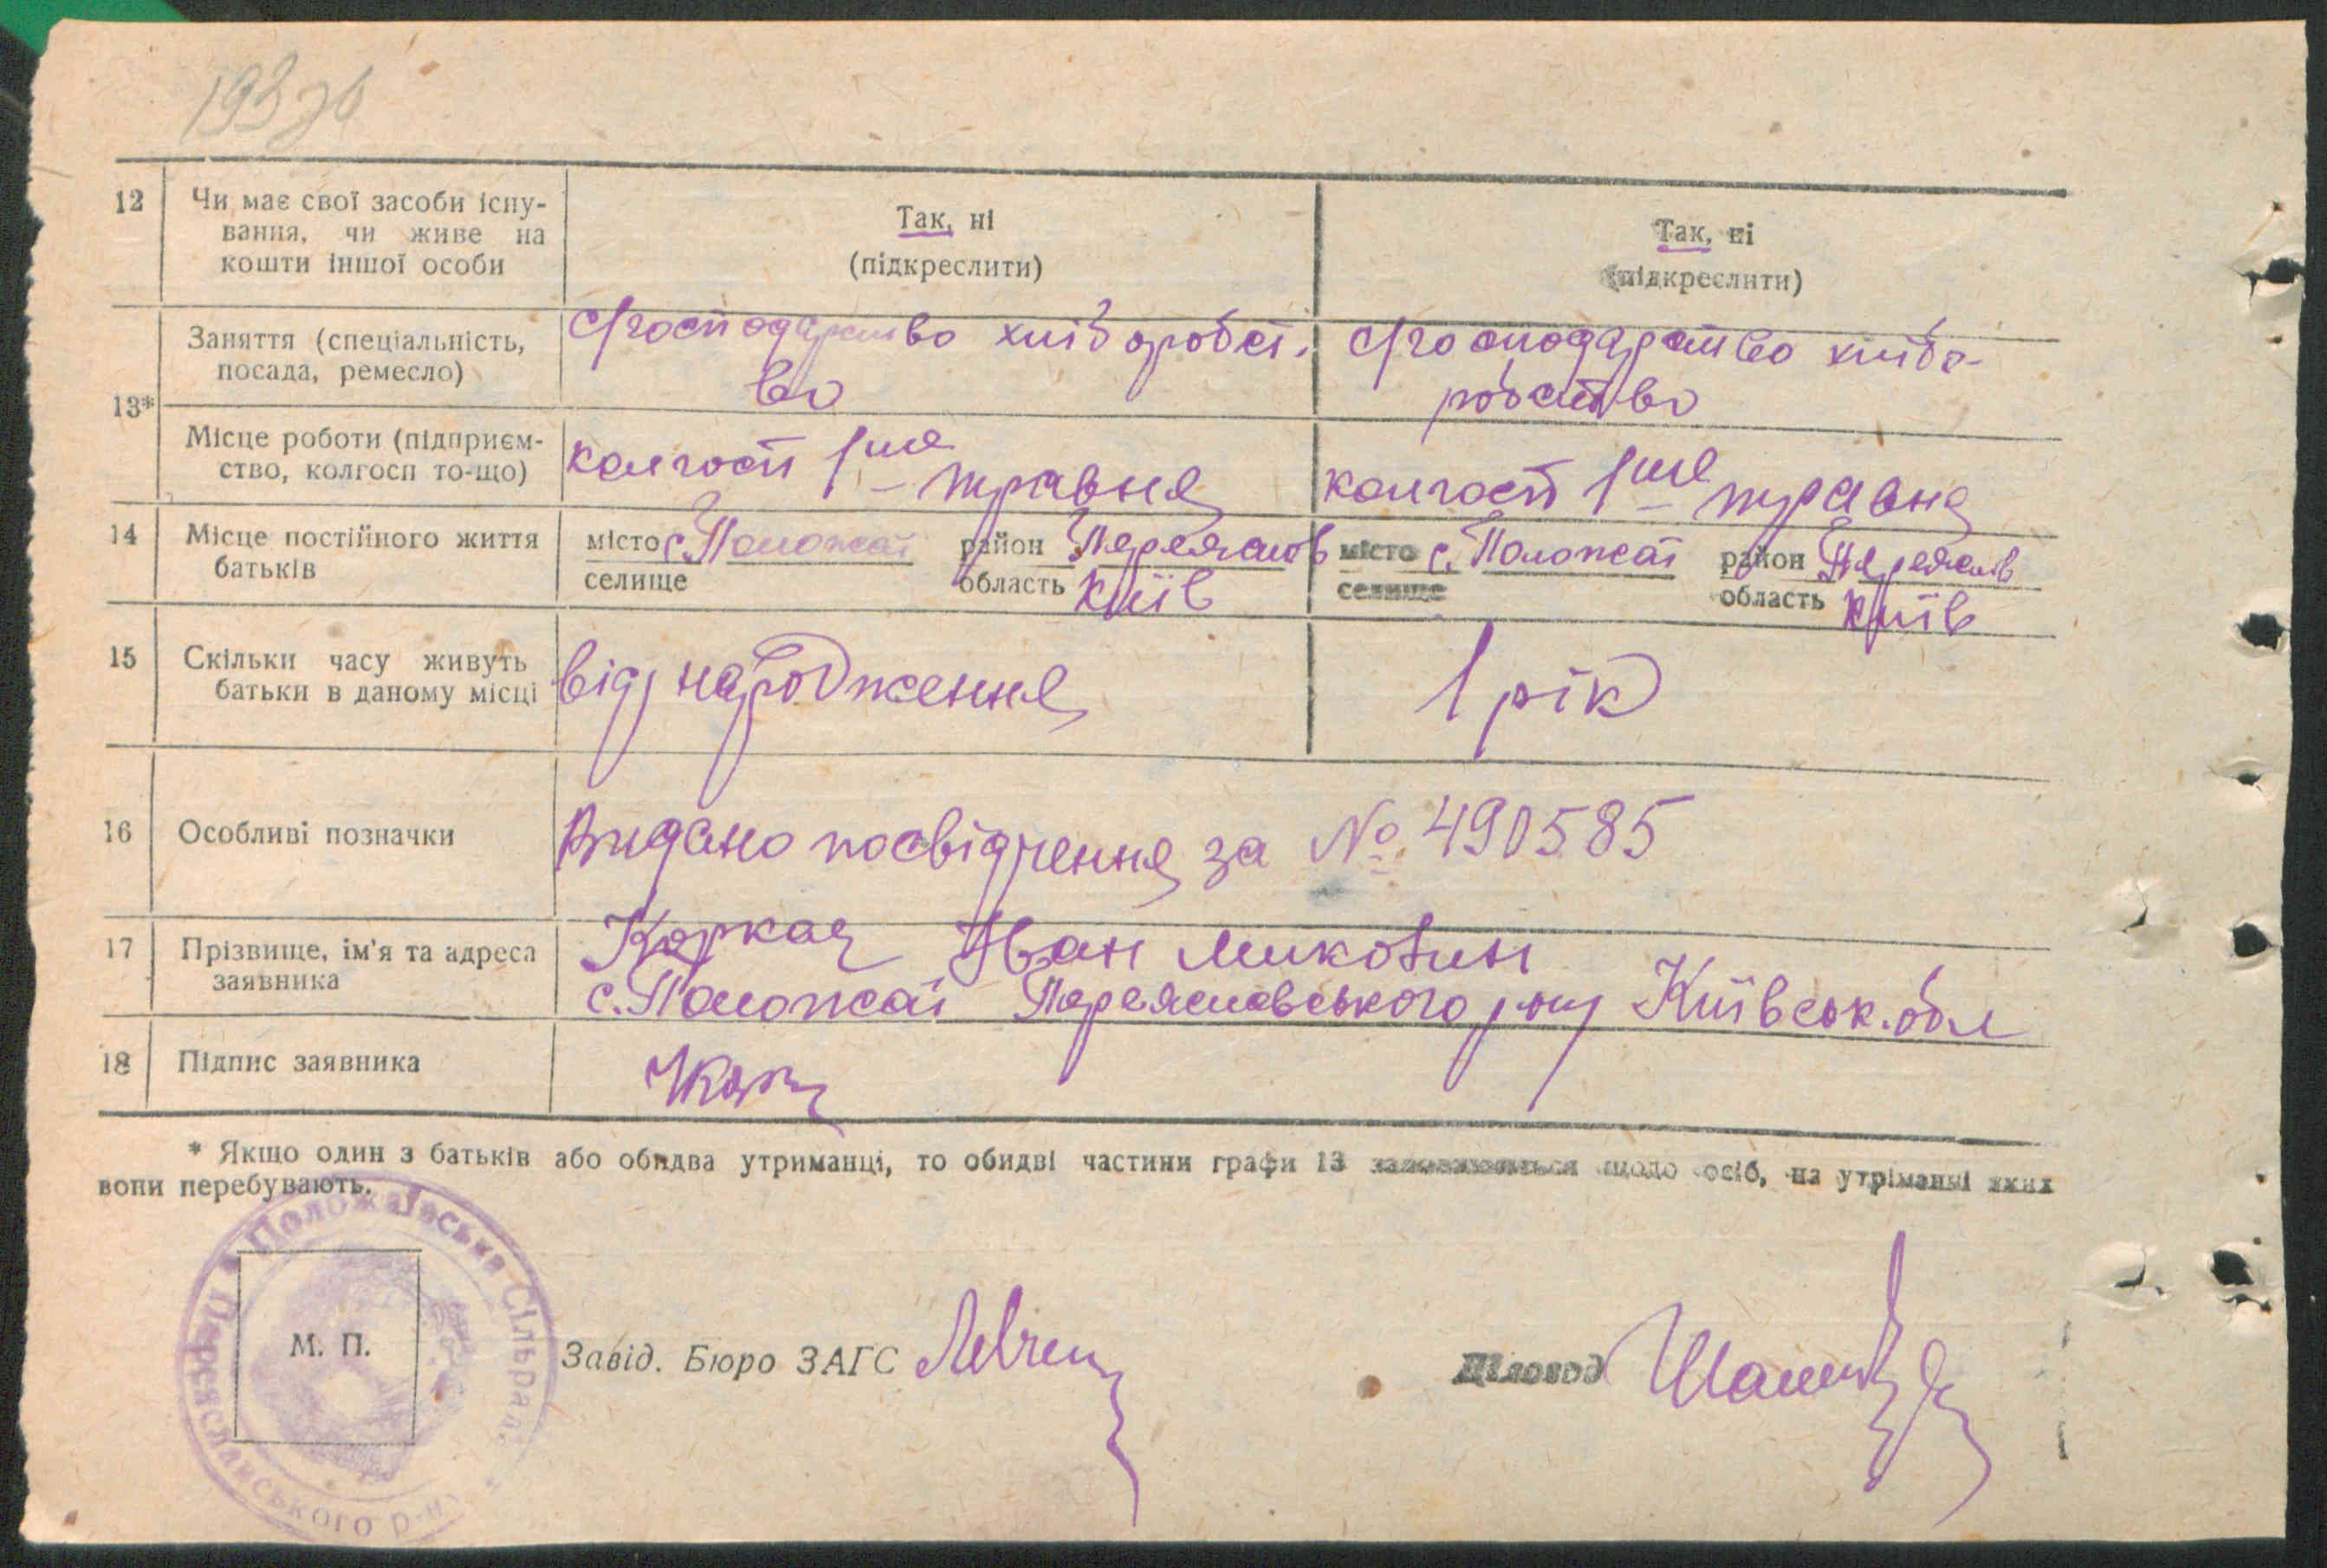 193 зв
12 Чи має свої засоби існу-
вання, чи живе на
кошти іншої особи
Так, ні
(підкреслити)
Так, ні
(підкреслити)
13*
Заняття (спеціальність,
посада, ремесло)
с/господарство хліборобст.
во
с/господарство хлібо-
робство
Місце роботи (підприєм-
ство, колгосп то-що)
колгосп 1ше травня
колгосп 1ше травня
14 Місце постійного життя
батьків
місто с. Положаї район Переяслов
селище область Київ
місто с. Положаї район Переяслов
селище область Київ
15 Скільки часу живуть
батьки в даному місці
від народження
1 рік
16 Особливі позначки
Видано посвідчення за № 490585
17 Прізвище, ім'я та адреса
заявника
Коркач Іван
с. Положаї Переяславського р-ну Київськ. обл
18 Підпис заявника
* Якщо один з батьків або обидва утриманці, то обидві частини графи 13 заповнюються щодо осіб, на утріманні яких
вони перебувають.
Положаївська Сільрада
Переяславського р-ну
М. П.
Завід. Бюро ЗАГС
Діловод